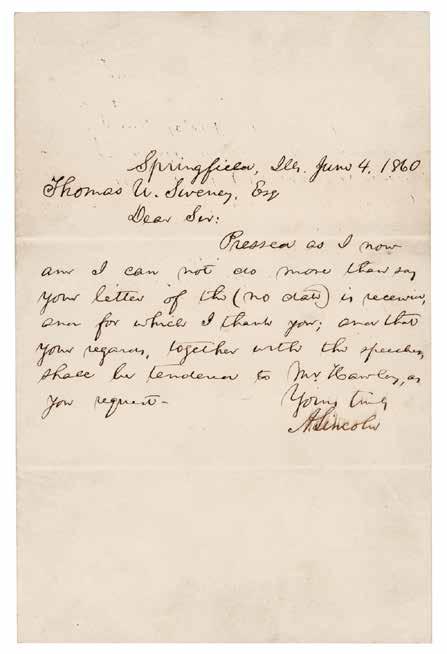 Springfield, Ills. June 4, 1860
Thomas W. Sweney, Esq
Dear Sir:
Pressed as I now
am I can not do more than say
your letter of the (no date) is received,
and for which I thank you; and that
your regards, together with the speeches,
shall be tendered to Mr. Hawley, as
you request—
Yours truly
A Lincoln